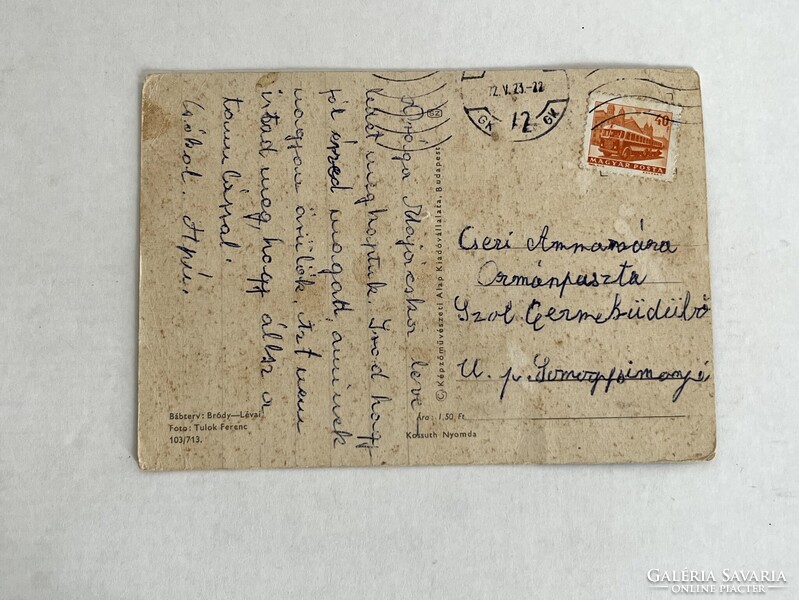 Drága Majácska leve-
ledet megkaptuk. Írod hogy
jól érzed magad, aminek
nagyon örülök. Azt nem
írtad meg, hogy állsz a
tanulással
Csókol. Apu.
GK 12 GK
72. V. 23.-22
40
MAGYAR POSTA
Cseri Annamária
Ormánpuszta
Szol. Germeküdülő
U. p. Somogysimonyi
© Képzőművészeti Alap Kiadóvállalata, Budapest
Bábterv: Bródy—Lévai
Foto: Tulok Ferenc
103/713.
Ára: 1,50, Ft
Kossuth Nyomda
GALÉRIA SAVARIA
ONLINE PIACTÉR